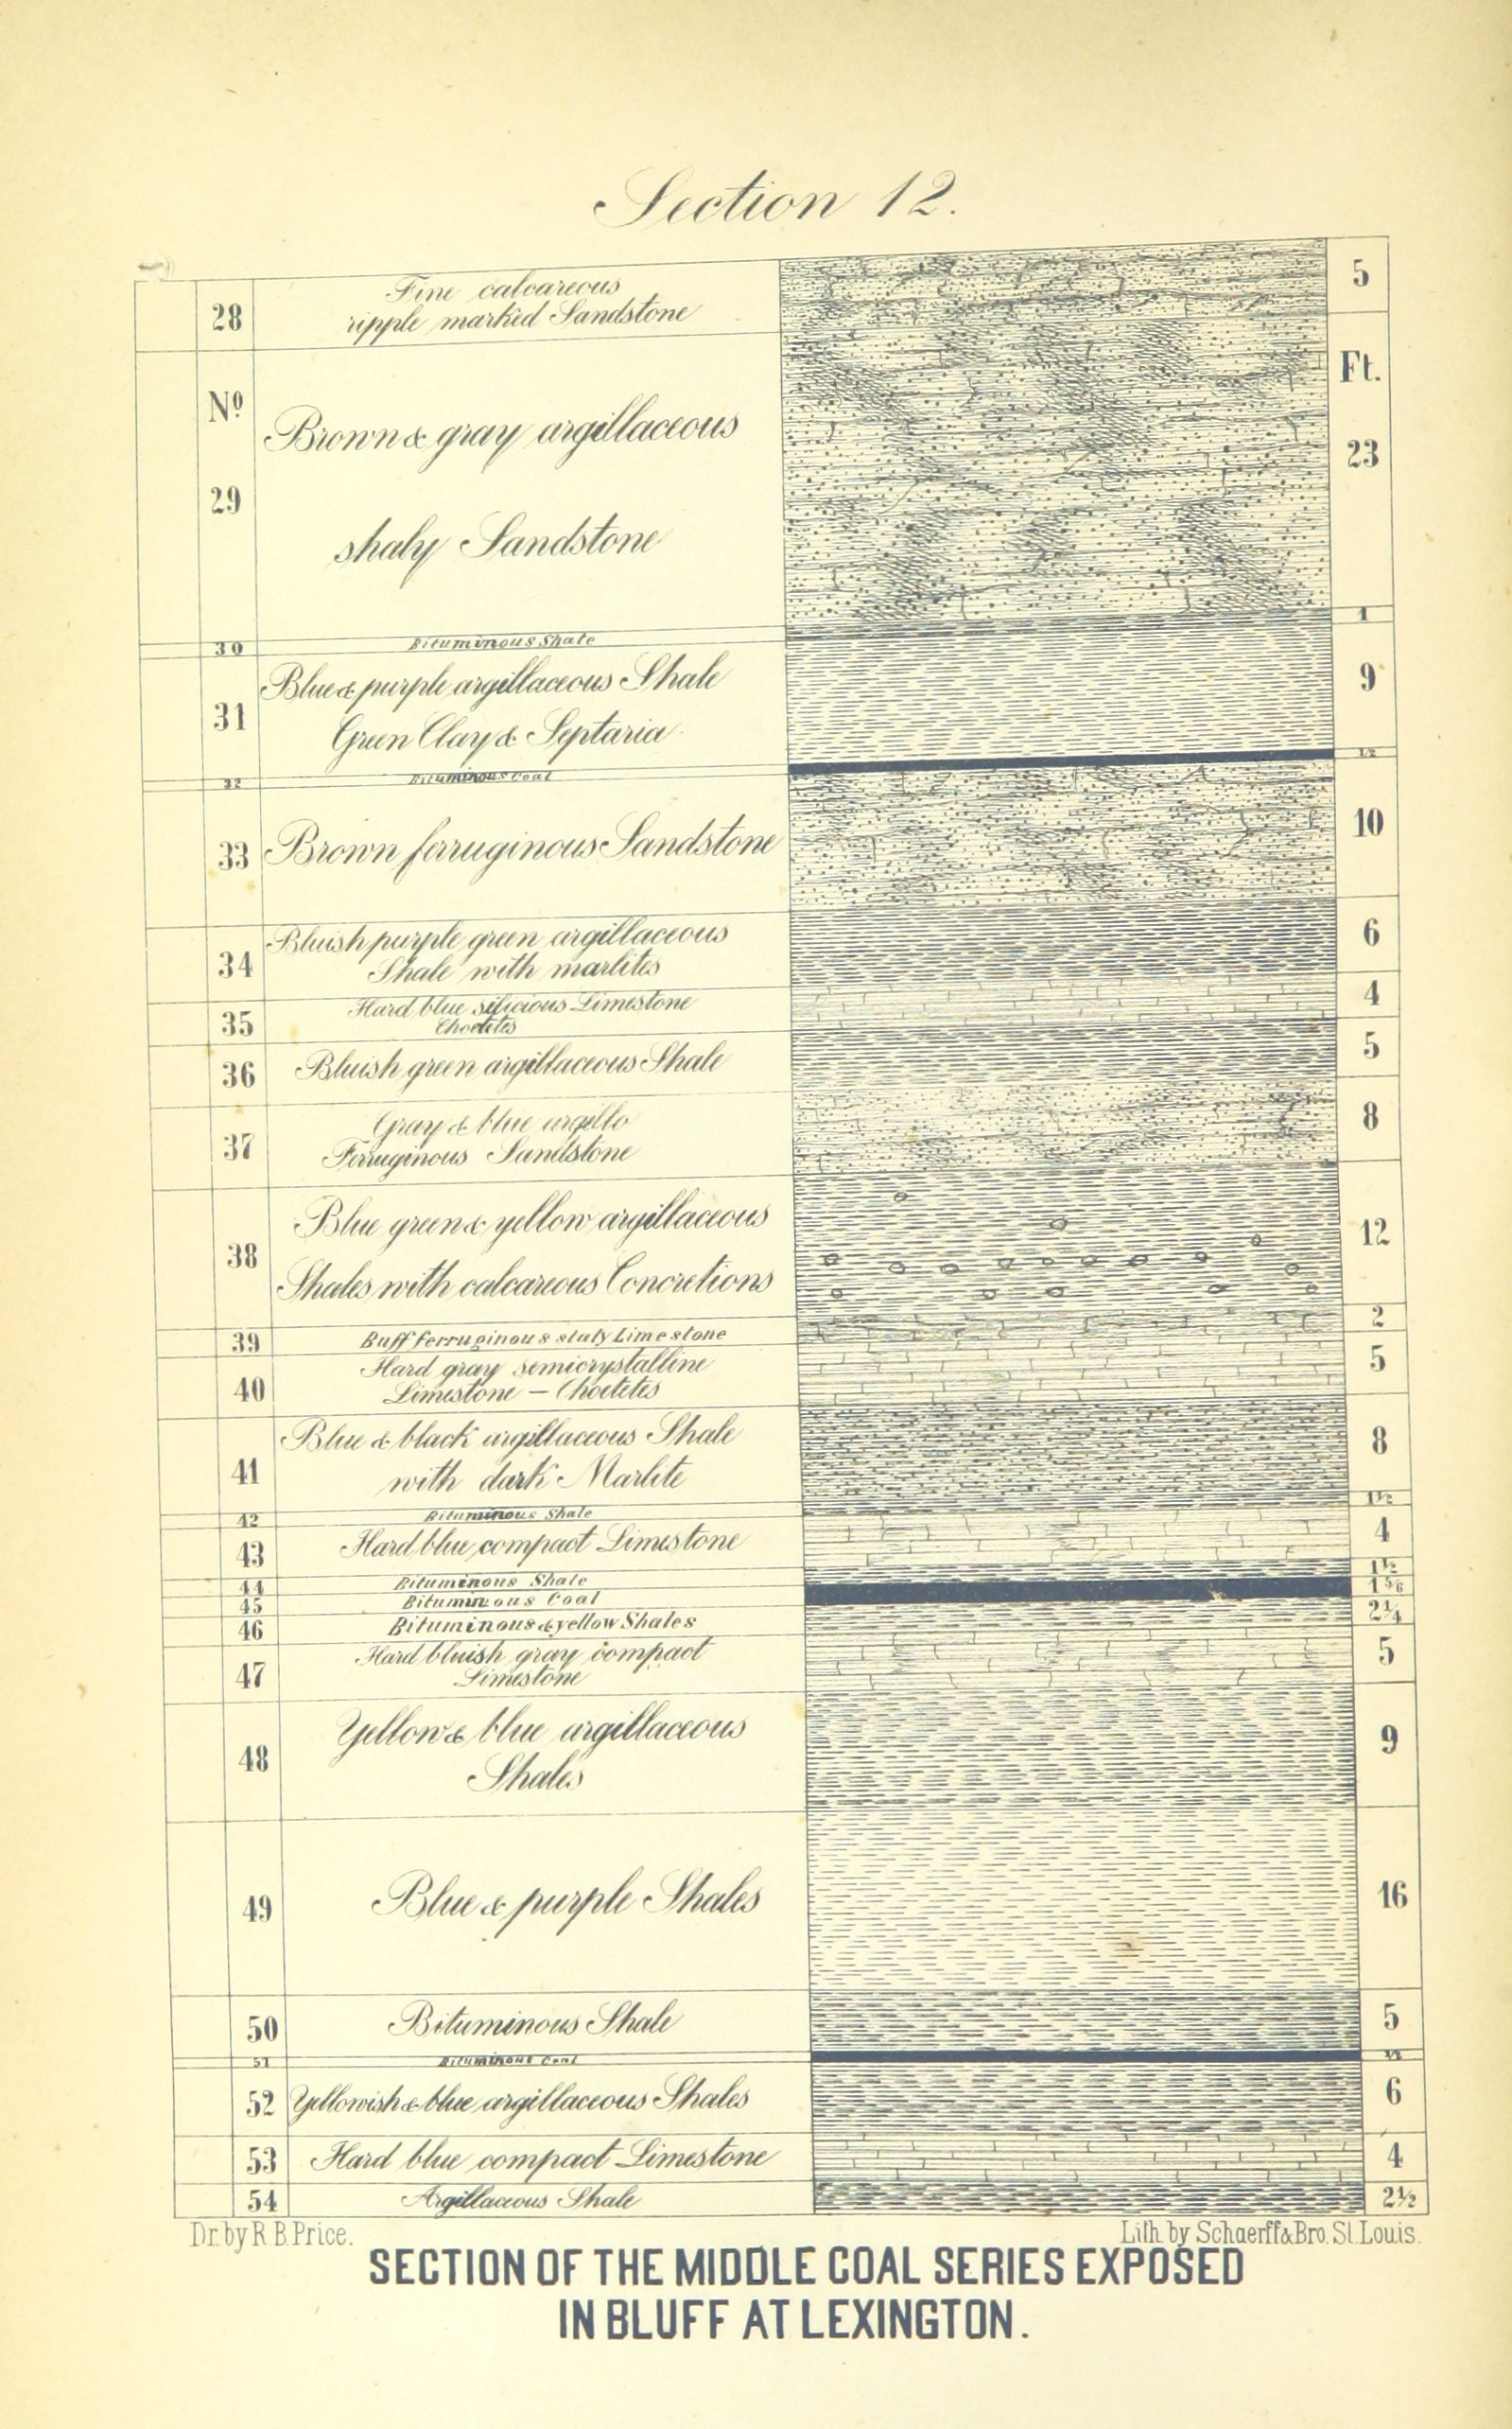 Section 12.
28 Fine calcareous 5
ripple marked Sandstone
Nº Ft.
29 Brown & gray argillaceous 23
shaly Sandstone
30 Bituminous Shale 1
31 Blue & purple argillaceous Shale 9
Green Clay & Septaria
32 Bituminous Coal 1/2
33 Brown ferruginous Sandstone 10
34 Bluish purple green argillaceous 6
Shale with marlites
35 Hard blue silicious Limestone 4
Choetetes
36 Bluish green argillaceous Shale 5
37 Gray & blue argillo 8
Ferruginous Sandstone
38 Blue green & yellow argillaceous 12
Shales with calcareous Concretions
39 Buff ferruginous slaty Limestone 2
40 Hard gray semicrystalline 5
Limestone – Choetetes
41 Blue & black argillaceous Shale 8
with dark Marlite
42 Bituminous Shale 1½
43 Hard blue compact Limestone 4
44 Bituminous Shale 1½
45 Bituminous Coal 1 5/6
46 Bituminous & yellow Shales 2¼
47 Hard bluish gray compact 5
Limestone
48 Yellow & blue argillaceous 9
Shales
49 Blue & purple Shales 16
50 Bituminous Shale 5
51 Bituminous Coal
52 Yellowish & blue argillaceous Shales 6
53 Hard blue compact Limestone 4
54 Argillaceous Shale 2½
Dr. by R. B. Price. Lith. by Schaerff & Bro. St. Louis.
SECTION OF THE MIDDLE COAL SERIES EXPOSED
IN BLUFF AT LEXINGTON.